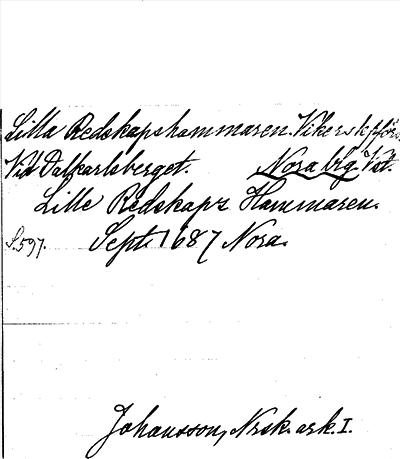 Lilla Redskapshammaren. Vikers kpförs.
Vid Dalkarlsberget. Nora bg. Väst.
Lille Redskaps Hammaren.
S. 597. Sept. 1687 Nora.
Johansson, Nrsk. ark. I.